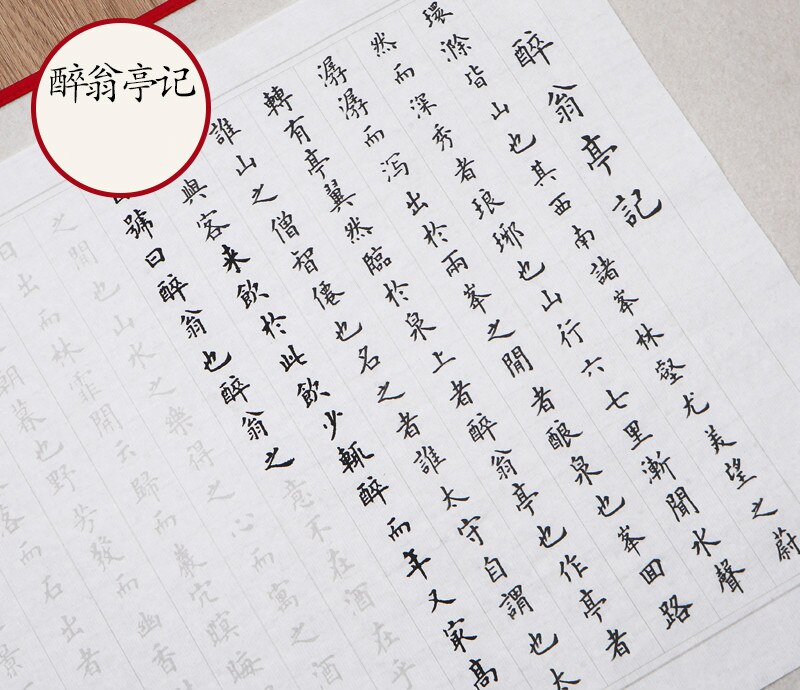 醉翁亭记
醉翁亭記
環滁皆山也其西南諸峯林壑尤美望之蔚
然而深秀者琅琊也山行六七里漸聞水聲
潺潺而泻出於兩峯之間者酿泉也峯回路
轉有亭翼然臨於泉上者醉翁亭也作亭者
誰山之僧智僊也名之者誰太守自謂也太
與客来飲於此飲少輒醉而年又㝡高
號曰醉翁也醉翁之意不在酒在乎
之間也山水之樂得之心而寓之酒
日出而林霏開云歸而巖穴暝晦
朝暮也野芳發而幽香
而石出者
景